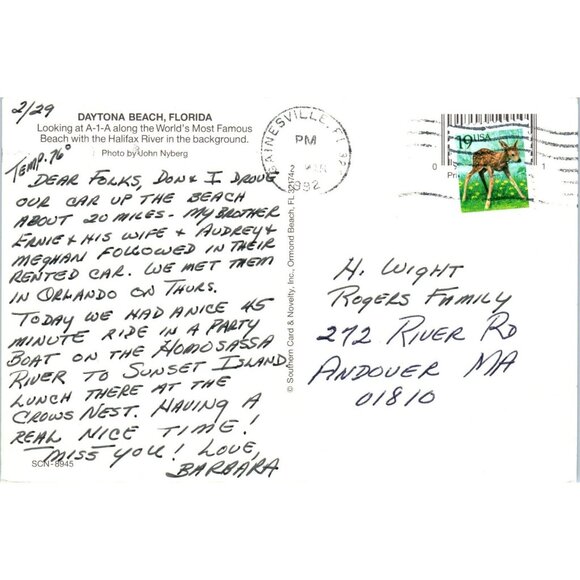 2/29
DAYTONA BEACH, FLORIDA
Looking at A-1-A along the World's Most Famous
Beach with the Halifax River in the background.
Photo by John Nyberg
TEMP. 76°
DEAR FOLKS, DON & I DROVE
OUR CAR UP THE BEACH
ABOUT 20 MILES - MY BROTHER
ERNIE & HIS WIFE & AUDREY &
MEGHAN FOLLOWED IN THEIR
RENTED CAR. WE MET THEM
IN ORLANDO ON THURS.
TODAY WE HAD A NICE 45
MINUTE RIDE IN A PARTY
BOAT ON THE HOMOSASSA
RIVER TO SUNSET ISLAND
LUNCH THERE AT THE
CROWS NEST. HAVING A
REAL NICE TIME!
MISS YOU! LOVE,
BARBARA
SCN-8945
© Southern Card & Novelty, Inc., Ormond Beach, FL 32174
GAINESVILLE, FL
PM
1992
19 USA
H. WIGHT
ROGERS FAMILY
272 RIVER RD
ANDOVER MA
01810